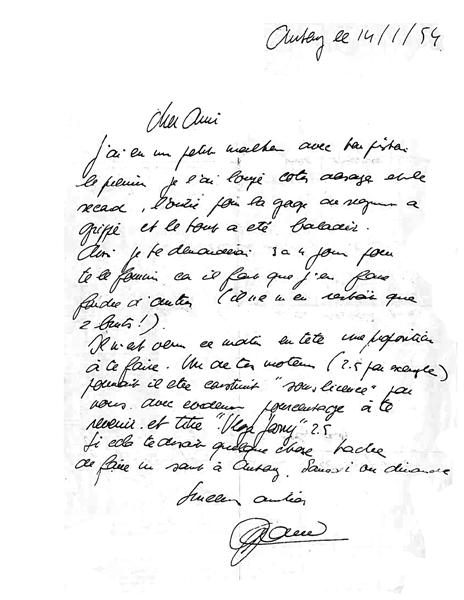 le 14/1/54
Cher Ami
J'ai eu un petit malheur avec ton piston.
le premier je l'ai loupé cotes alesage et le
second, l'outil pour la gorge du segment a
grippé et le tout a été
Aussi je te demanderai 3 a 4 jours pour
te le fournir car il faut que j'en fasse
fondre d'autres (il ne m'en restait que
2 bruts!).
Il m'est venu ce matin en tête une proposition
à te faire. Un de tes moteurs (2.5 par exemple)
pourrait il etre construit "sous licence" par
nous. avec evidemment pourcentage à te
revenir. et titre " 2.5
Si cela te disait quelque chose tache
de faire un saut à Samedi ou dimanche
Sinceres amitiés